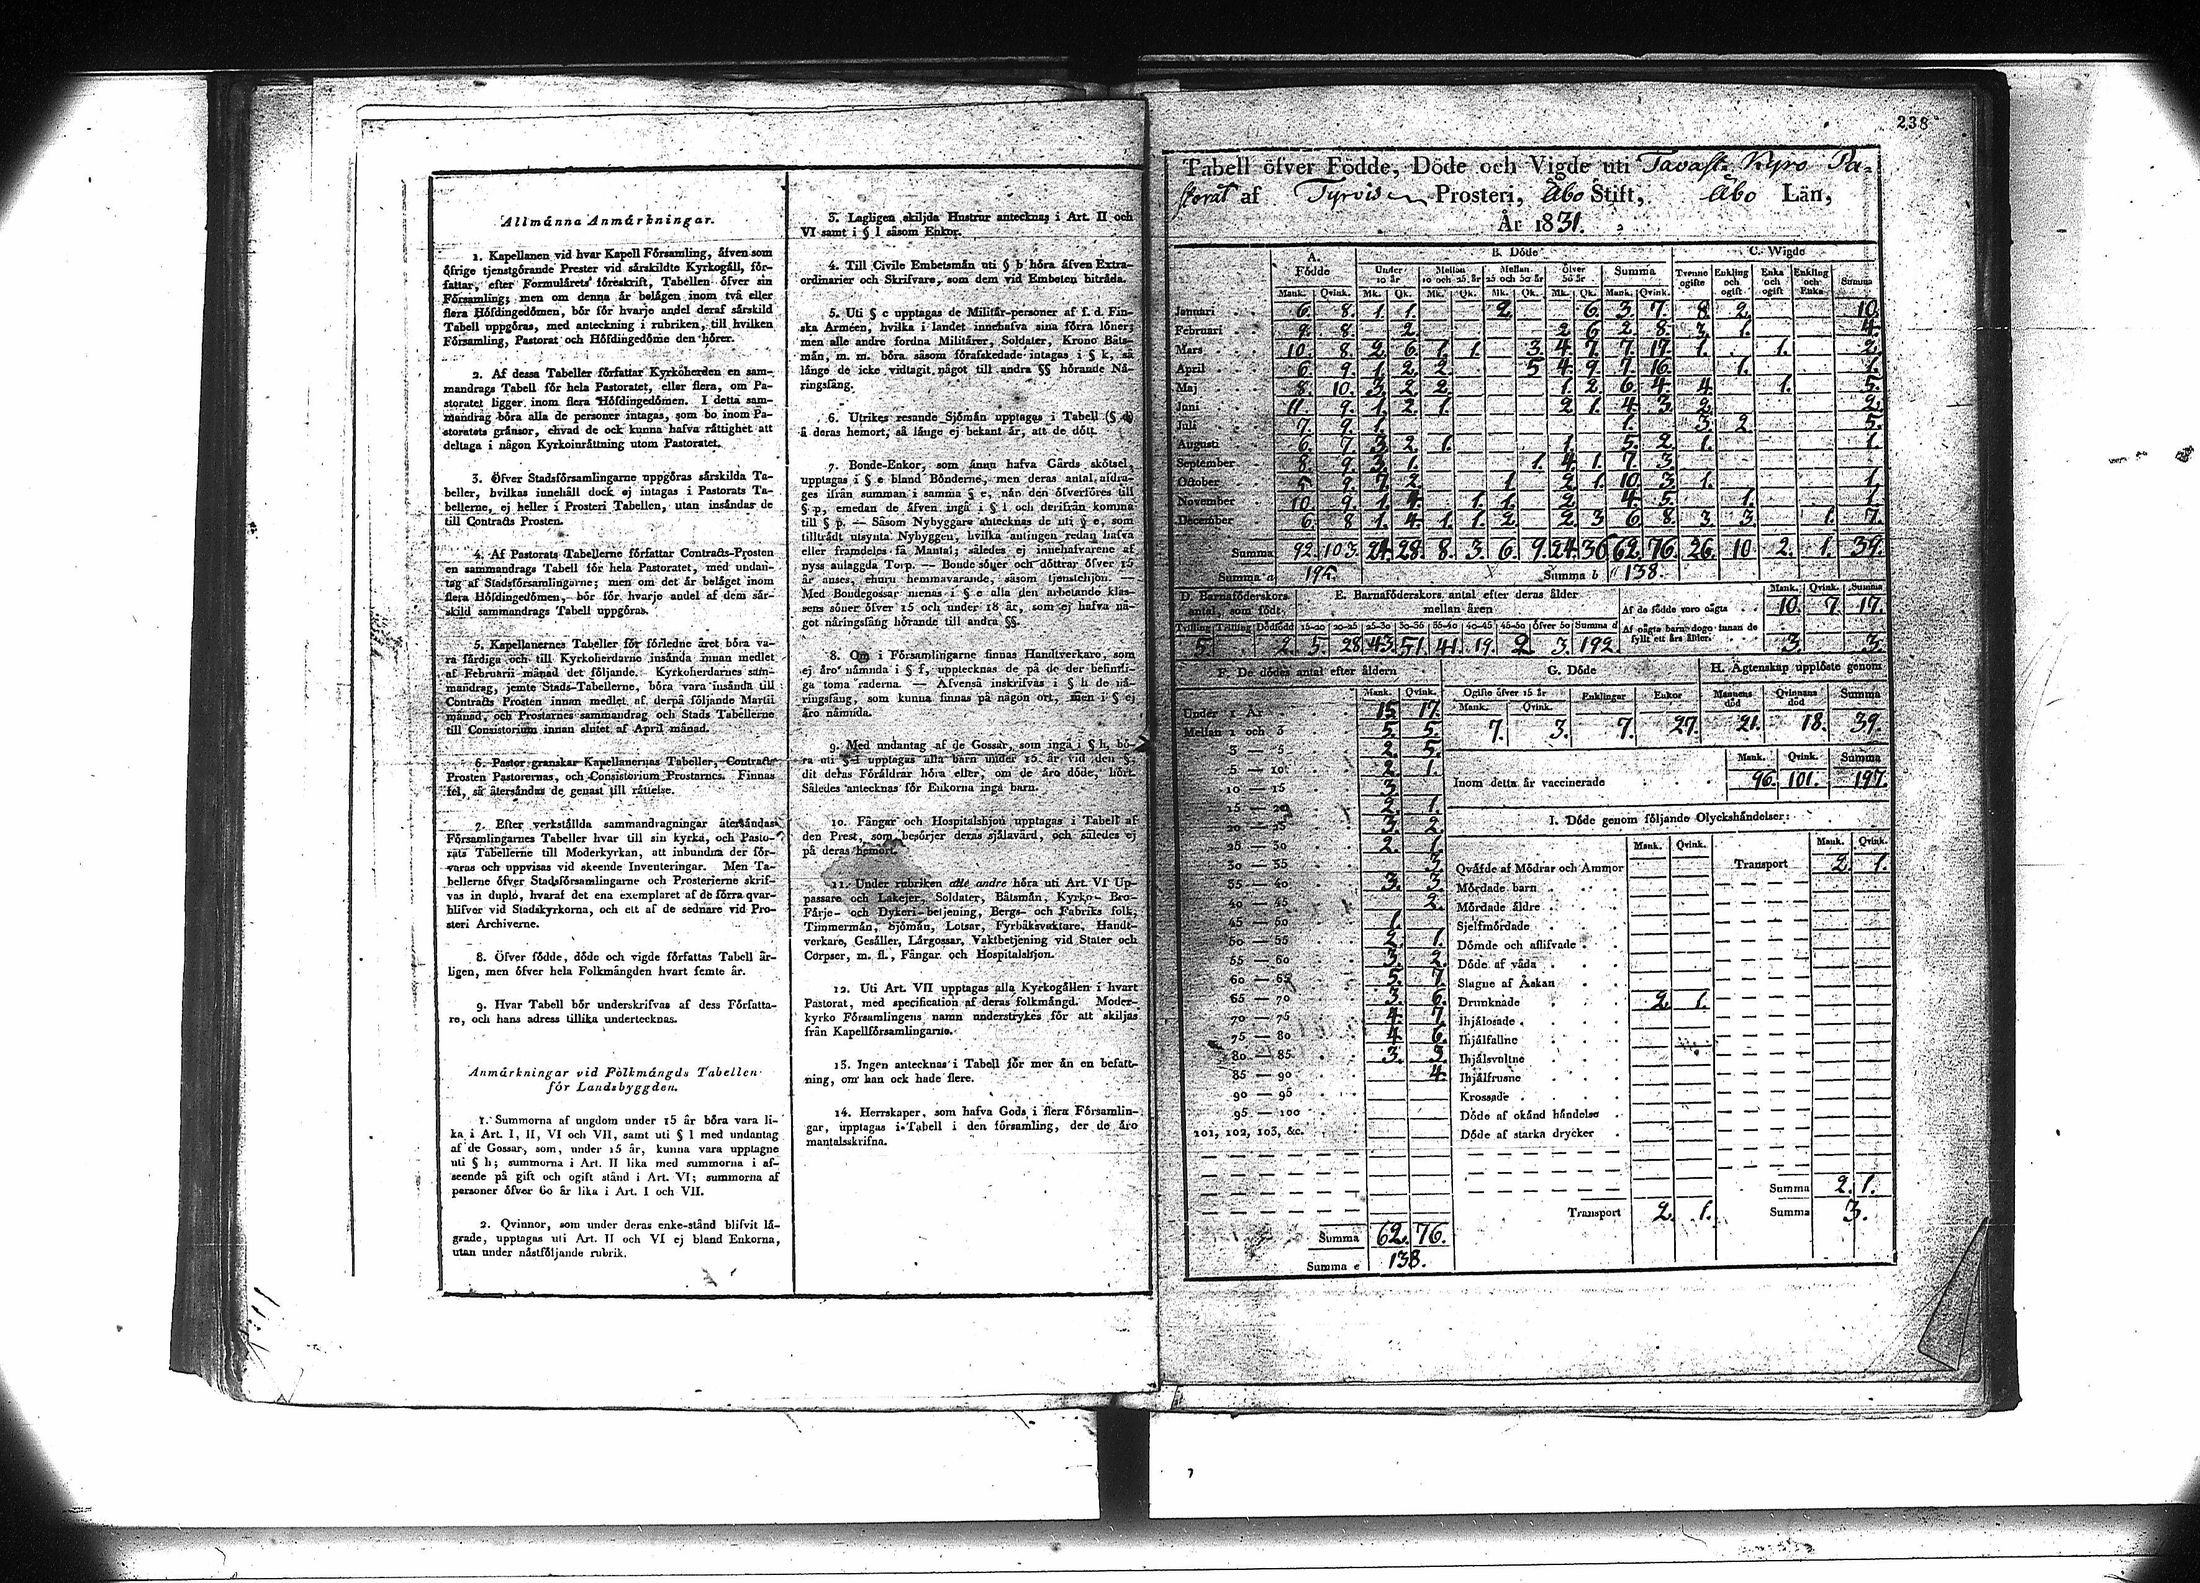 Allmänna Anmärkningar.
1. Kapellanen vid hvar Kapell Församling, äfven som
öfrige tjenstgörande Prester vid särskildte Kyrkogäll, för-
fattar, efter Formulärets föreskrift, Tabellen öfver sin
Församling; men om denna är belägen inom två eller
flera Höfdingedömen, bör för hvarje andel deraf särskild
Tabell uppgöras, med anteckning i rubriken, till hvilken
Församling, Pastorat och Höfdingedöme den hörer.
2. Af dessa Tabeller författar Kyrkoherden en sam-
mandrags Tabell för hela Pastoratet, eller flera, om Pa-
storatet ligger inom flera Höfdingedömen. I detta sam-
mandrag böra alla de personer intagas, som bo inom Pa-
storatets gränsor, ehvad de ock kunna hafva rättighet att
deltaga i någon Kyrkoinrättning utom Pastoratet.
3. Öfver Stadsförsamlingarne uppgöras särskilda Ta-
beller, hvilkas innehåll dock ej intagas i Pastorats Ta-
bellerne, ej heller i Prosteri Tabellen, utan insändas de
till Contracts Prosten.
4. Af Pastorats Tabellerne författar Contracts-Prosten
en sammandrags Tabell för hela Pastoratet, med undan-
tag af Stadsförsamlingarne; men om det är beläget inom
flera Höfdingedömen, bör för hvarje andel af dem sär-
skild sammandrags Tabell uppgöras.
5. Kapellanernes Tabeller för förledne året böra va-
ra färdiga och till Kyrkoherdarne insända innan medlet
af Februarii månad det följande. Kyrkoherdarnes sam-
mandrag, jemte Stads-Tabellerne, böra vara insända till
Contracts Prosten innan medlet af derpå följande Martii
månad, och Prostarnes sammandrag och Stads Tabellerne
till Consistorium innan slutet af April månad.
6. Pastor granskar Kapellanernas Tabeller, Contracts
Prosten Pastorernas, och Consistorium Prostarnes. Finnas
fel, så återsändas de genast till rättelse.
7. Efter verkställda sammandragningar återsändas
Församlingarnes Tabeller hvar till sin kyrka, och Pasto-
rats Tabellerne till Moderkyrkan, att inbundna der för-
varas och uppvisas vid skeende Inventeringar. Men Ta-
bellerne öfver Stadsförsamlingarne och Prosterierne skrif-
vas in duplo, hvaraf det ena exemplaret af de förra qvar-
blifver vid Stadskyrkorna, och ett af de sednare vid Pro-
steri Archiverne.
8. Öfver födde, döde och vigde författas Tabell år-
ligen, men öfver hela Folkmängden hvart femte år.
9. Hvar Tabell bör underskrifvas af dess Författa-
re, och hans adress tillika undertecknas.
Anmärkningar vid Folkmängds Tabellen
för Landsbyggden.
1. Summorna af ungdom under 15 år böra vara li-
ka i Art. I, II, VI och VII, samt uti § l med undantag
af de Gossar, som, under 15 år, kunna vara upptagne
uti § h; summorna i Art. II lika med summorna i af-
seende på gift och ogift stånd i Art. VI; summorna af
personer öfver 60 år lika i Art. I och VII.
2. Qvinnor, som under deras enke-stånd blifvit lä-
grade, upptagas uti Art. II och VI ej bland Enkorna,
utan under nästföljande rubrik.
3. Lagligen skiljda Hustrur antecknas i Art. II och
VI samt i § l såsom Enkor.
4. Till Civile Embetsmän uti § b höra äfven Extra-
ordinarier och Skrifvare, som dem vid Embeten biträda.
5. Uti § c upptagas de Militär-personer af f. d. Fin-
ska Arméen, hvilka i landet innehafva sina förra löner;
men alle andre fordna Militärer, Soldater, Krono Båts-
män, m. m. böra såsom förafskedade intagas i § k, så
länge de icke vidtagit något till andra §§ hörande Nä-
ringsfång.
6. Utrikes resande Sjömän upptages i Tabell (§ d)
å deras hemort, så länge ej bekant är, att de dött.
7. Bonde-Enkor, som ännu hafva Gårds skötsel,
upptagas i § e bland Bönderne, men deras antal afdra-
ges ifrån summan i samma § e, när den öfverföres till
§ p, emedan de äfven ingå i § l och derifrån komma
till § p. — Såsom Nybyggare antecknas de uti § e, som
tillträdt utsynta Nybyggen, hvilka antingen redan hafva
eller framdeles få Mantal; således ej innehafvarene af
nyss anlaggda Torp. — Bonde söner och döttrar öfver 15
år anses, ehuru hemmavarande, såsom tjenstehjon. —
Med Bondegossar menas i § e alla den arbetande klas-
sens söner öfver 15 och under 18 år, som ej hafva nå-
got näringsfång hörande till andra §§.
8. Om i Församlingarne finnas Handtverkare, som
ej äro nämnda i § f, upptecknas de på de der befintli-
ga toma raderna. — Äfvenså inskrifvas i § h de nä-
ringsfång, som kunna finnas på någon ort, men i § ej
äro nämnda.
9. Med undantag af de Gossar, som ingå i § h, bö-
ra uti § l upptagas alla barn under 15 år vid den §,
dit deras Föräldrar höra eller, om de äro döde, hört.
Således antecknas för Enkorna inga barn.
10. Fångar och Hospitalshjon upptagas i Tabell af
den Prest, som besörjer deras själavård, och således ej
på deras hemort.
11. Under rubriken alle andre höra uti Art. VI Up-
passare och Lakejer, Soldater, Båtsmän, Kyrko- Bro-
Färje- och Dykeri-betjening, Bergs- och Fabriks folk,
Timmermän, Sjömän, Lotsar, Fyrbåksvaktare, Handt-
verkare, Gesäller, Lärgossar, Vaktbetjening vid Stater och
Corpser, m. fl., Fångar och Hospitalshjon.
12. Uti Art. VII upptagas alla Kyrkogällen i hvart
Pastorat, med specification af deras folkmängd. Moder-
kyrko Församlingens namn understrykes för att skiljas
från Kapellförsamlingarne.
13. Ingen antecknas i Tabell för mer än en befatt-
ning, om han ock hade flere.
14. Herrskaper, som hafva Gods i flera Församlin-
gar, upptagas i Tabell i den församling, der de äro
mantalsskrifna.
238
Tabell öfver Födde, Döde och Vigde uti Tavast Kyro Pa-
storat af Tyrvis Prosteri, Åbo Stift, Åbo Län,
År 1831.
A. Födde B. Döde C. Vigde
Under 10 år Mellan 10 och 25 år Mellan 25 och 50 år Öfver 50 år Summa Tvenne ogifte Enkling och ogift Enka och ogift Enkling och Enka Summa
Mank. Qvink. Mk. Qk. Mk. Qk. Mk. Qk. Mk. Qk. Mank. Qvink.
Januari 6. 8. 1. 1. 2. 6. 3. 7. 8. 2. 10.
Februari 9. 8. 2. 2. 6. 2. 8. 3. 1. 4.
Mars 10. 8. 2. 6. 1. 1. 3. 4. 7. 7. 17. 1. 1. 2.
April 6. 9. 1. 2. 2. 5. 4. 9. 7. 16. 1. 1.
Maj 8. 10. 3. 2. 2. 1. 2. 6. 4. 4. 1. 5.
Juni 11. 9. 1. 2. 1. 2. 1. 4. 3. 2. 2.
Juli 7. 9. 1. 1. 3. 2. 5.
Augusti 6. 7. 3. 2. 1. 1. 5. 2. 1. 1.
September 8. 9. 3. 1. 1. 4. 1. 7. 3.
October 5. 9. 7. 2. 1. 2. 1. 10. 3. 1. 1.
November 10. 9. 1. 4. 1. 1. 2. 4. 5. 1. 1.
December 6. 8. 1. 4. 1. 1. 2. 2. 3. 6. 8. 3. 3. 1. 7.
Summa 92. 103. 24. 28. 8. 3. 6. 9. 24. 36. 62. 76. 26. 10. 2. 1. 39.
Summa a 195. Summa b 138.
D. Barnaföderskors antal, som födt,
Tvilling Trilling Dödfödd
5. 2.
E. Barnaföderskors antal efter deras ålder mellan åren
15-20 20-25 25-30 30-35 35-40 40-45 45-50 öfver 50 Summa d
5. 28. 43. 51. 41. 19. 2. 3. 192.
Mank. Qvink. Summa
Af de födde voro oägta 10. 7. 17.
Af oägta barn dogo innan de fyllt ett års ålder 3. 3.
F. De dödes antal efter åldern
Mank. Qvink.
Under 1 År 15. 17.
Mellan 1 och 3 5. 5.
3 — 5 2. 5.
5 — 10 2. 1.
10 — 15 3.
15 — 20 2. 1.
20 — 25 3. 2.
25 — 30 2. 1.
30 — 35 3.
35 — 40 3. 3.
40 — 45 2.
45 — 50 1.
50 — 55 2. 1.
55 — 60 3. 2.
60 — 65 5. 7.
65 — 70 3. 6.
70 — 75 4. 7.
75 — 80 4. 6.
80 — 85 3. 3.
85 — 90 4.
90 — 95
95 — 100
101, 102, 103, &c.
Summa 62. 76.
Summa e 138.
G. Döde
Ogifte öfver 15 år Enklingar Enkor
Mank. Qvink.
7. 3. 7. 27.
H. Ägtenskap upplöste genom
Mannens död Qvinnans död Summa
21. 18. 39.
Mank. Qvink. Summa
Inom detta år vaccinerade 96. 101. 197.
I. Döde genom följande Olyckshändelser:
Mank. Qvink. Mank. Qvink.
Qväfde af Mödrar och Ammor Transport 2. 1.
Mördade barn
Mördade äldre
Sjelfmördade
Dömde och aflifvade
Döde af våda
Slagne af Åskan
Drunknade 2. 1.
Ihjälosade
Ihjälfallne
Ihjälsvultne
Ihjälfrusne
Krossade
Döde af okänd händelse
Döde af starka drycker
Summa 2. 1.
Transport 2. 1. Summa 3.